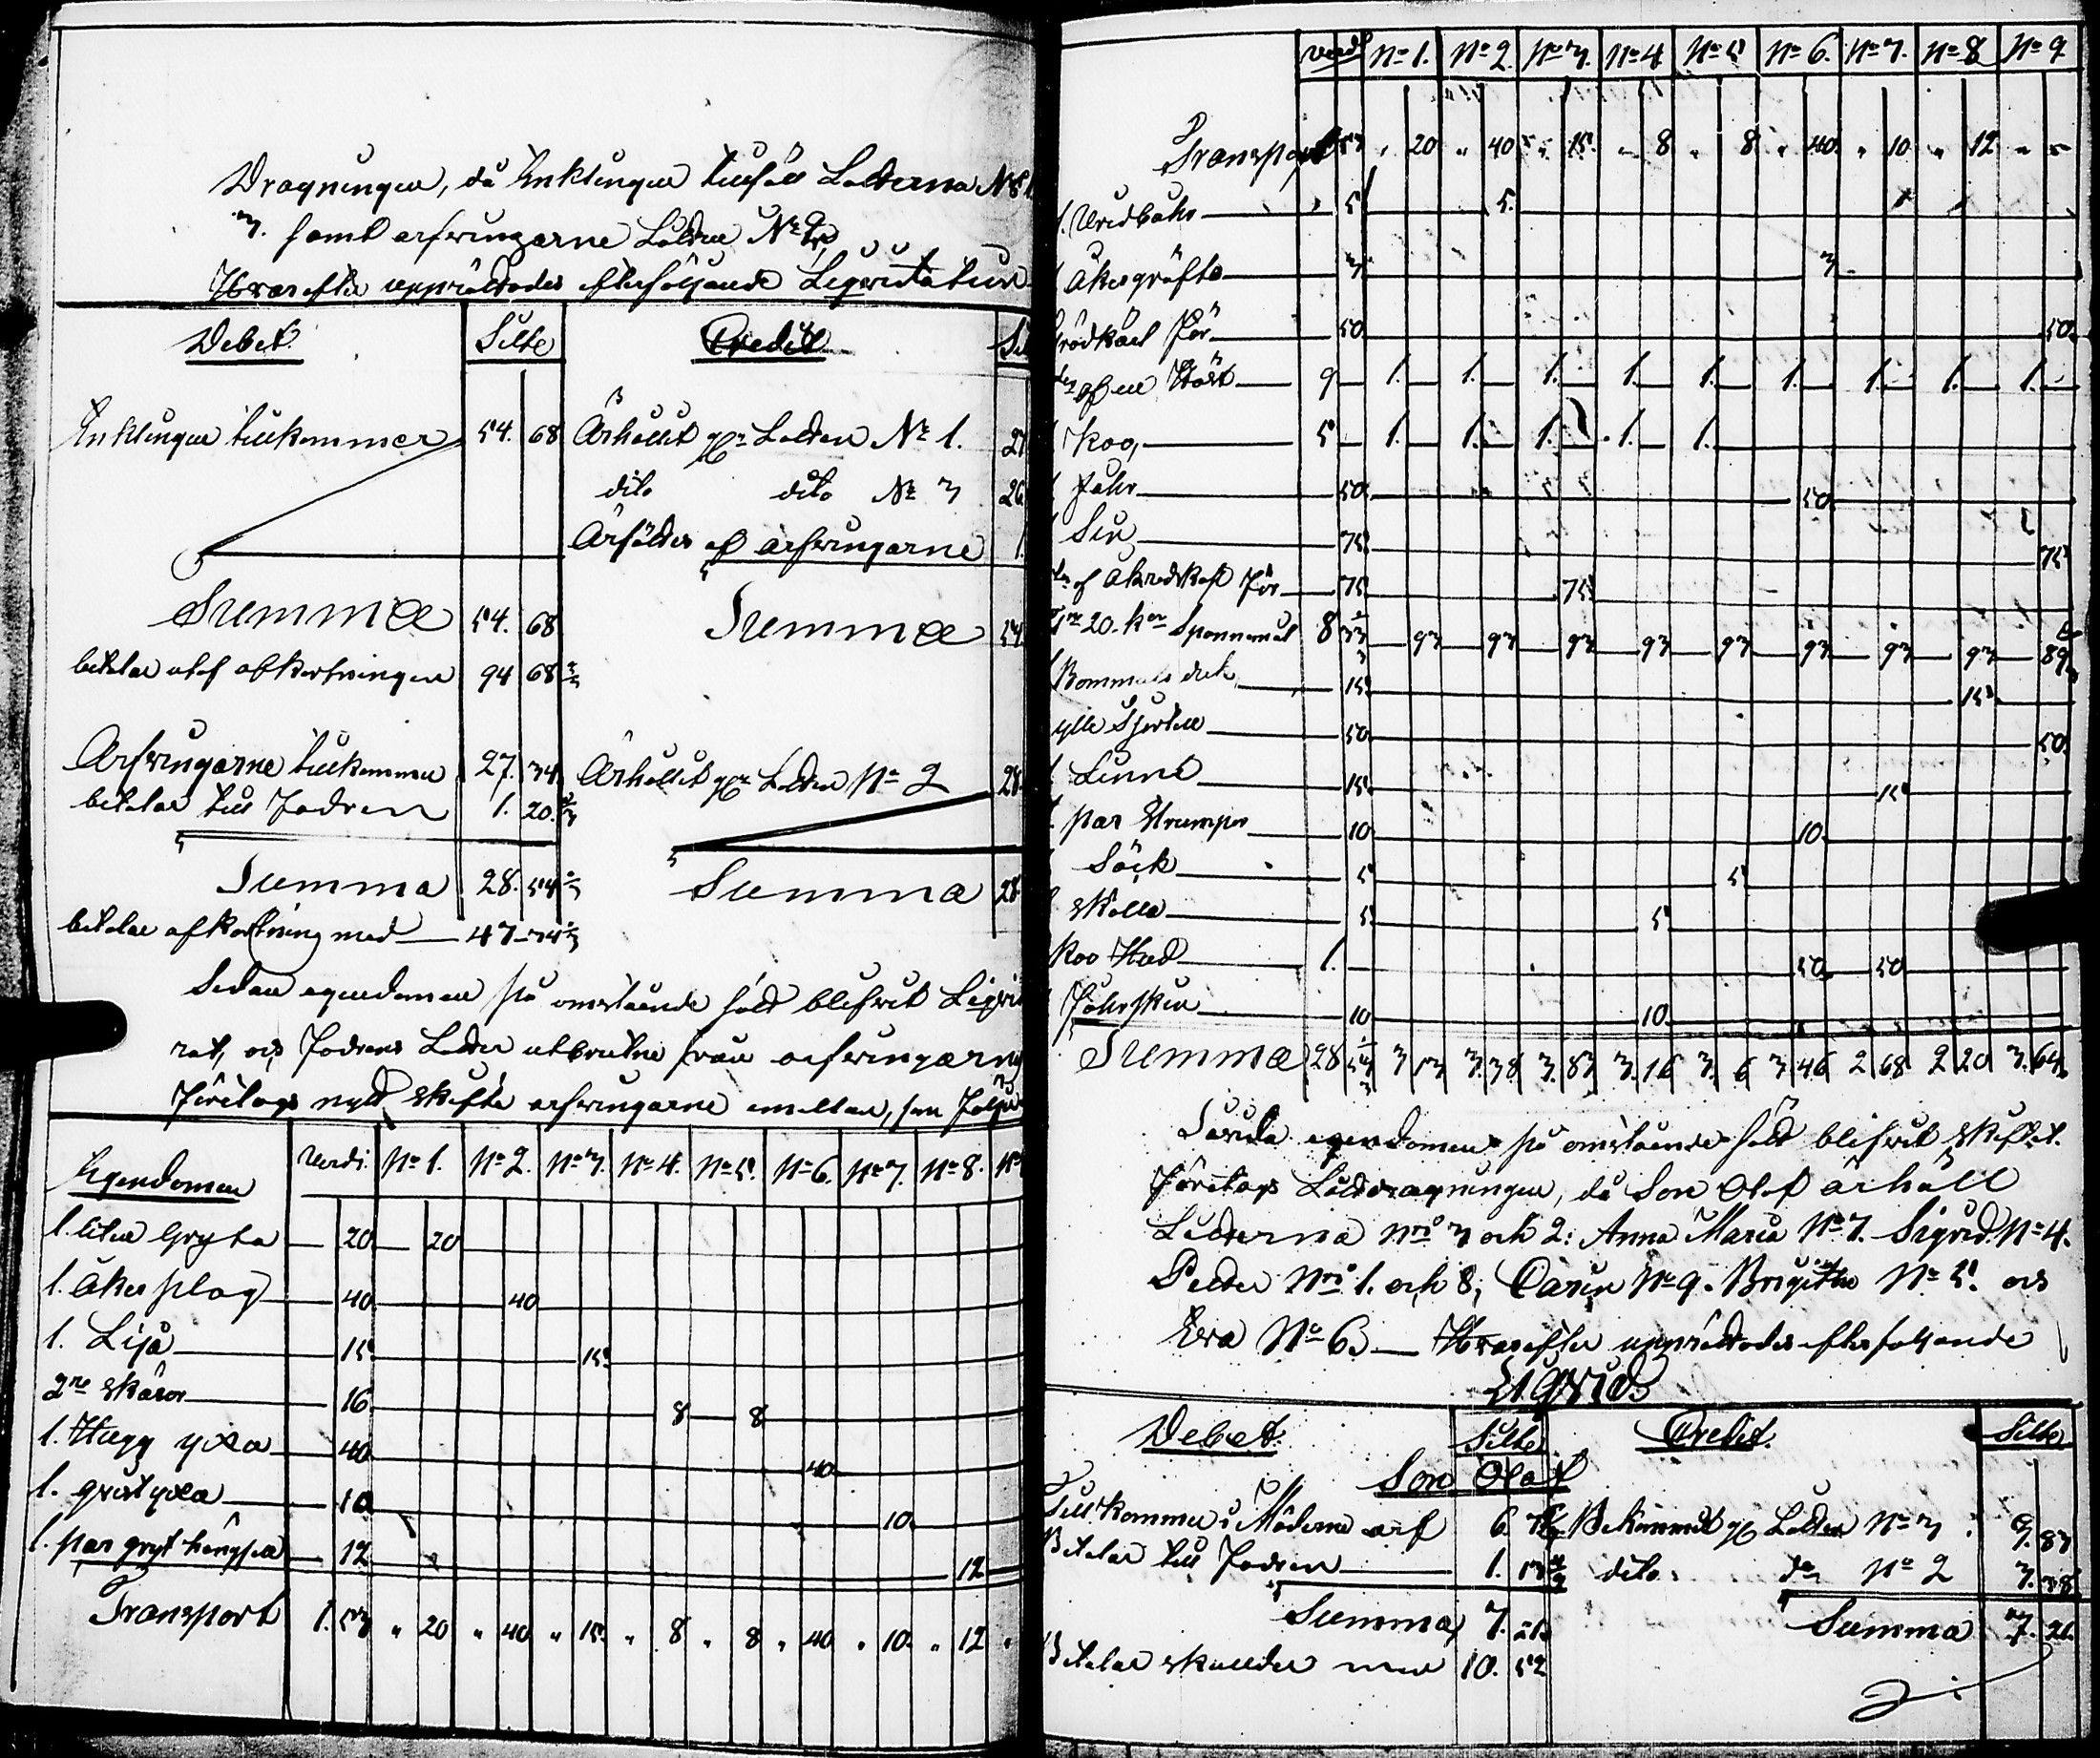 Dragningen, då Enklingen tillföll Lotterna N:o 1
3. samt arfwingarne Lotten N:o 2
Hwarefter upprättades efterföljande Liqvidation
Debet. Silfr Credit
Enklingen tillkommer 54. 68 Erhållit p:r Lotten N:o 1. 27
dito dito N:o 3 26
Erhålder af arfwingarne 1.
Summa 54. 68 Summa 54
betalar utaf afkortningen 94 68 2/3
Arfwingarne tillkommer 27. 34 Erhållit p:r Lotten N:o 2 28
betalar till Fadren 1. 20. 2/3
Summa 28. 54 2/3 Summa 28
betalar afkortning med 47 34 1/3
Sedan egendomen på omstående sätt blifwit Liqvi
rat, och Fadrens Lotter utbrutne från arfwingarne
Företogs nytt skifte arfwingarne emellan, som följer
Egendomen Werdi. N:o 1. N:o 2. N:o 3. N:o 4. N:o 5. N:o 6. N:o 7. N:o 8. N:o
1. liten Gryta 20 20
1. åker plog 40 40
1. Lija 15 15
2:ne skäror 16 8 8
1. Hugg yxa 40 40
1. qvist yxa 10 10
1. par gryt hängslen 12 12
Transport 1. 53 " 20 " 40 " 15. " 8 " 8 " 40 " 10. " 12 "
Werdi N:o 1. N:o 2. N:o 3. N:o 4. N:o 5 N:o 6. N:o 7. N:o 8 N:o 9
Transport 1 53 " 20 " 40 " 15. " 8 " 8 " 40 " 10 " 12 " "
1. Wredbåhr 5 5.
1 Åkergräfta 3 3
50 50.
af en Häst 9 1. 1. 1. 1. 1. 1. 1. 1. 1.
1 Koo, 5 1. 1. 1. 1. 1.
1 Fåhr 50 50
1 Swin 75 75
af åkredskap för 75 75
20. k:r Spannemål 8 37 93 93 93 93 93 93 93 93 89
Bommuls duk 15 15
ylle Tjortell 50 50
1 Linne 15 15
1. par Strumpor 10 10.
1 Säck 5 5
1 skålla 5 5
Koo Hud 1. 50 50
1 Fåhrskin 10 10
Summa 28 54 2/3 3 53 3. 38 3. 83 3. 16 3. 6 3 46 2 68 2 20 3. 64
Sedan egendomen på omstående sätt blifwit skiftet.
Företogs Lottdragningen, då Son Olof erhöll
Lotterna N:ris 3 och 2: Anna Maria N:o 7. Sigrid N:o 4.
Peder N:ris 1. och 8, Carin N:o 9. Brigitta N:o 5. och
Ewa N:o 6. Hwarefter upprättades efterföljande
Liqvid
Debet. Silfr Credit. Silfr
Son Olof
Tillkommer i Möderne arf 6. Bekommit p:r Lotten N:o 3 3. 83
Betalar till Fadren 1. 13 dito. do N:o 2 3. 38
Summa 7. 21 Summa 7. 21
Betalar skulder med 10. 52